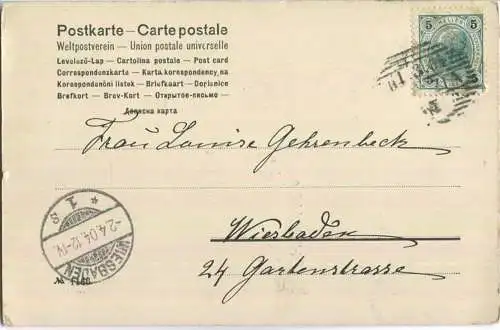 Postkarte — Carte postale
Weltpostverein — Union postale universelle
Levelező-Lap — Cartolina postale — Post card
Correspondenzkarte — Karta korespondencyjna
Korespondenční listek — Briefkaart — Dopisnice
Brefkort — Brev-Kort — Открытое письмо —
Дописна карта
5 5
Frau Louise Gehrenbeck
Wiesbaden
24 Gartenstrasse
* 1 g
-2.4.04.12-1V.
WIESBADEN
№ 1160